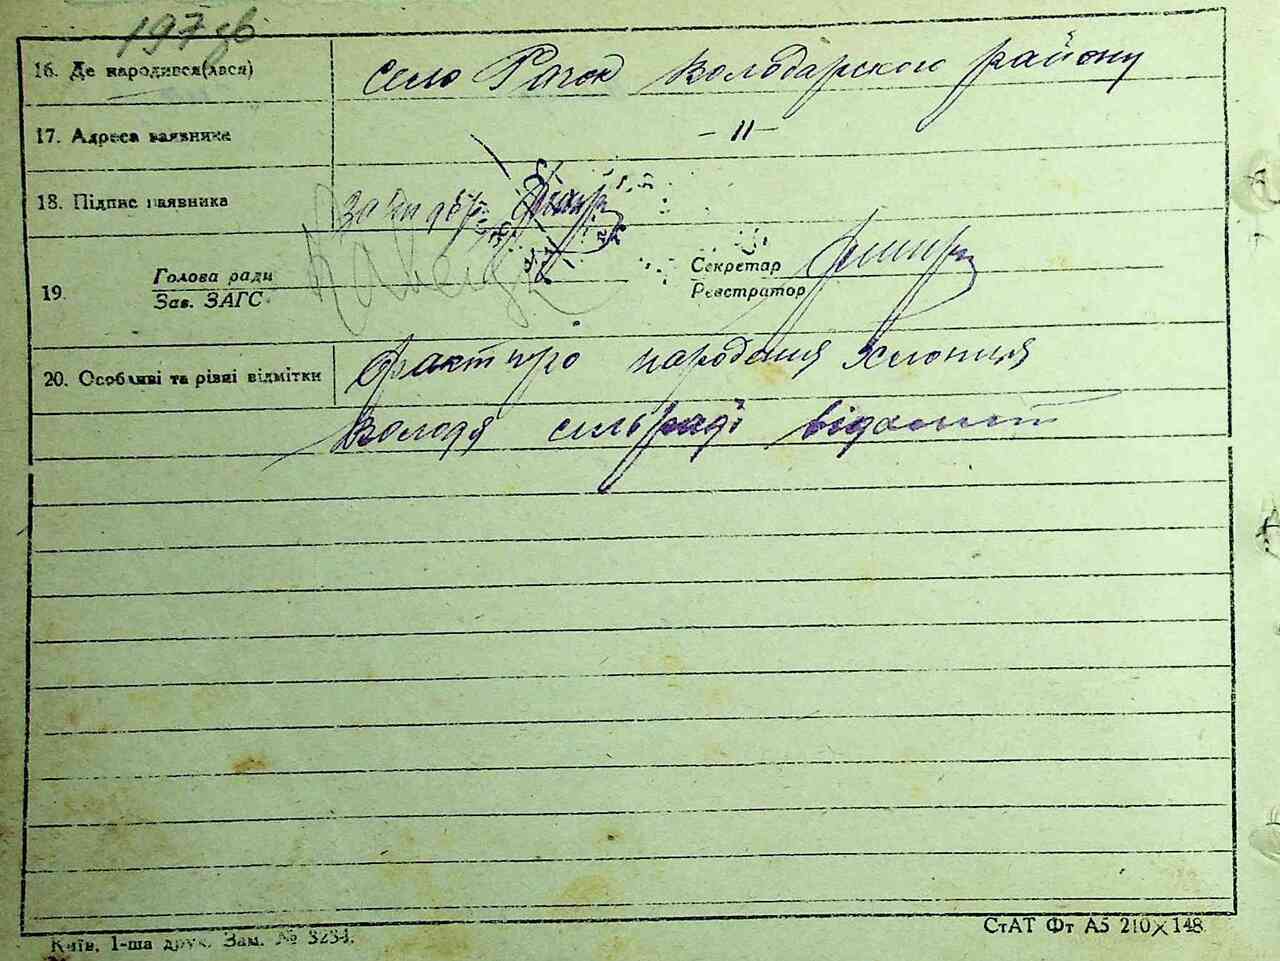 197 зв
16. Де народився(лася) село Рачок Володарского району
17. Адреса заявника -||-
18. Підпис заявника
19. Голова ради
Зав. ЗАГС
Секретар
Реєстратор
20. Особливі та різні відмітки Факт про народення хлопця
Володя сільраді відомий
Київ, 1-ша друк. Зам. № 3234. СтАТ Фт А5 210×148